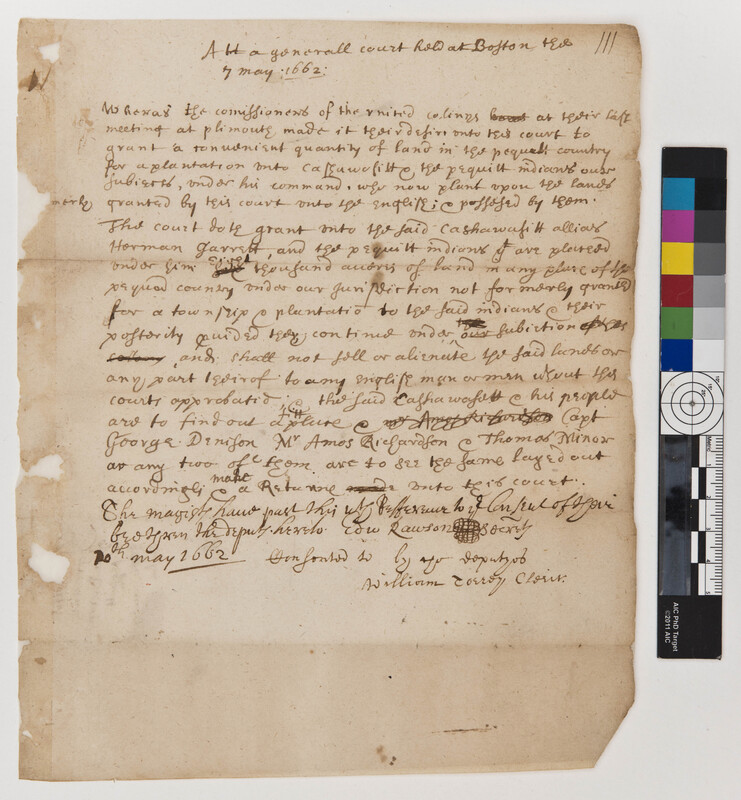 111
Att a generall court held at Boston the
7 may :1662:
Wheras the comissioners of the vnited colinys at their last
meeting at plimouth made it their desire vnto this court to
grant a convenient quantity of land in the pequott country
for a plantation vnto Cashawasitt & the pequitt indians our
subiects, vnder his command, who now plant vpon the lands
granted by this court vnto the english; & possesed by them.
The court doth grant vnto the said Cashawasitt allias
Herman Garrett, and the pequitt indians yt are placed
vnder him eight thousand accers of land in any place of the
pequod country vnder our Jurisdiction not formerly granted
for a townsip & plantatio to the said indians & their
posterity pvided they continue vnder the our subiection of this
collony, and shall not sell or alienate the said lands or
any part theirof to any english man or men wthout this
courts approbatiō; & the said Cassawasett & his people
are to find out a fitt place & mr Amos Richardson Capt
George Denison Mr Amos Richardson & Thomas Minor
or any two of them are to see the same layed out
accordingli & make a Returne made vnto this court.
The magists have past this wth Refference to ye Consent of their
brethren the deputs hereto Edw Rawson Secrety
10th may 1662 Consented to by the deputyes
William Torrey Cleric.